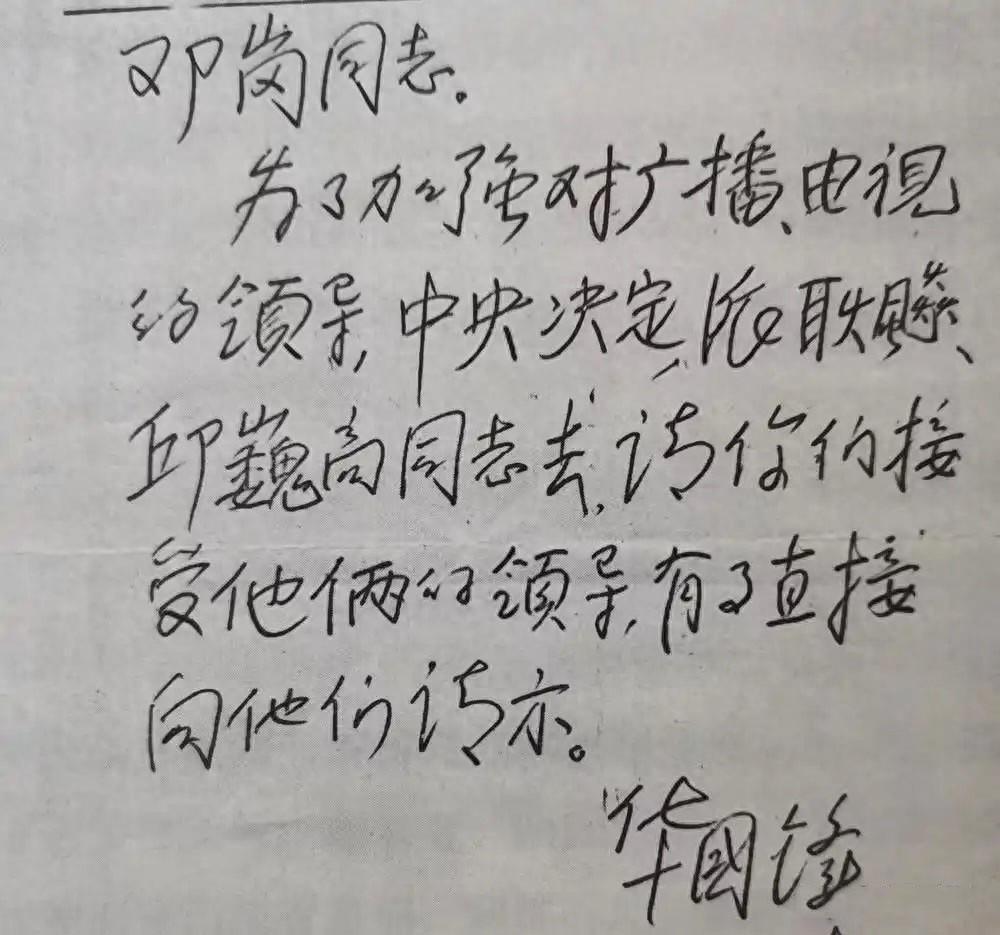 邓岗同志.
为了加强对广播、电视
的領导,中央决定,派耿飚、
邱巍高同志去,请你们接
受他俩的領导,有事直接
向他们请示。
华國锋